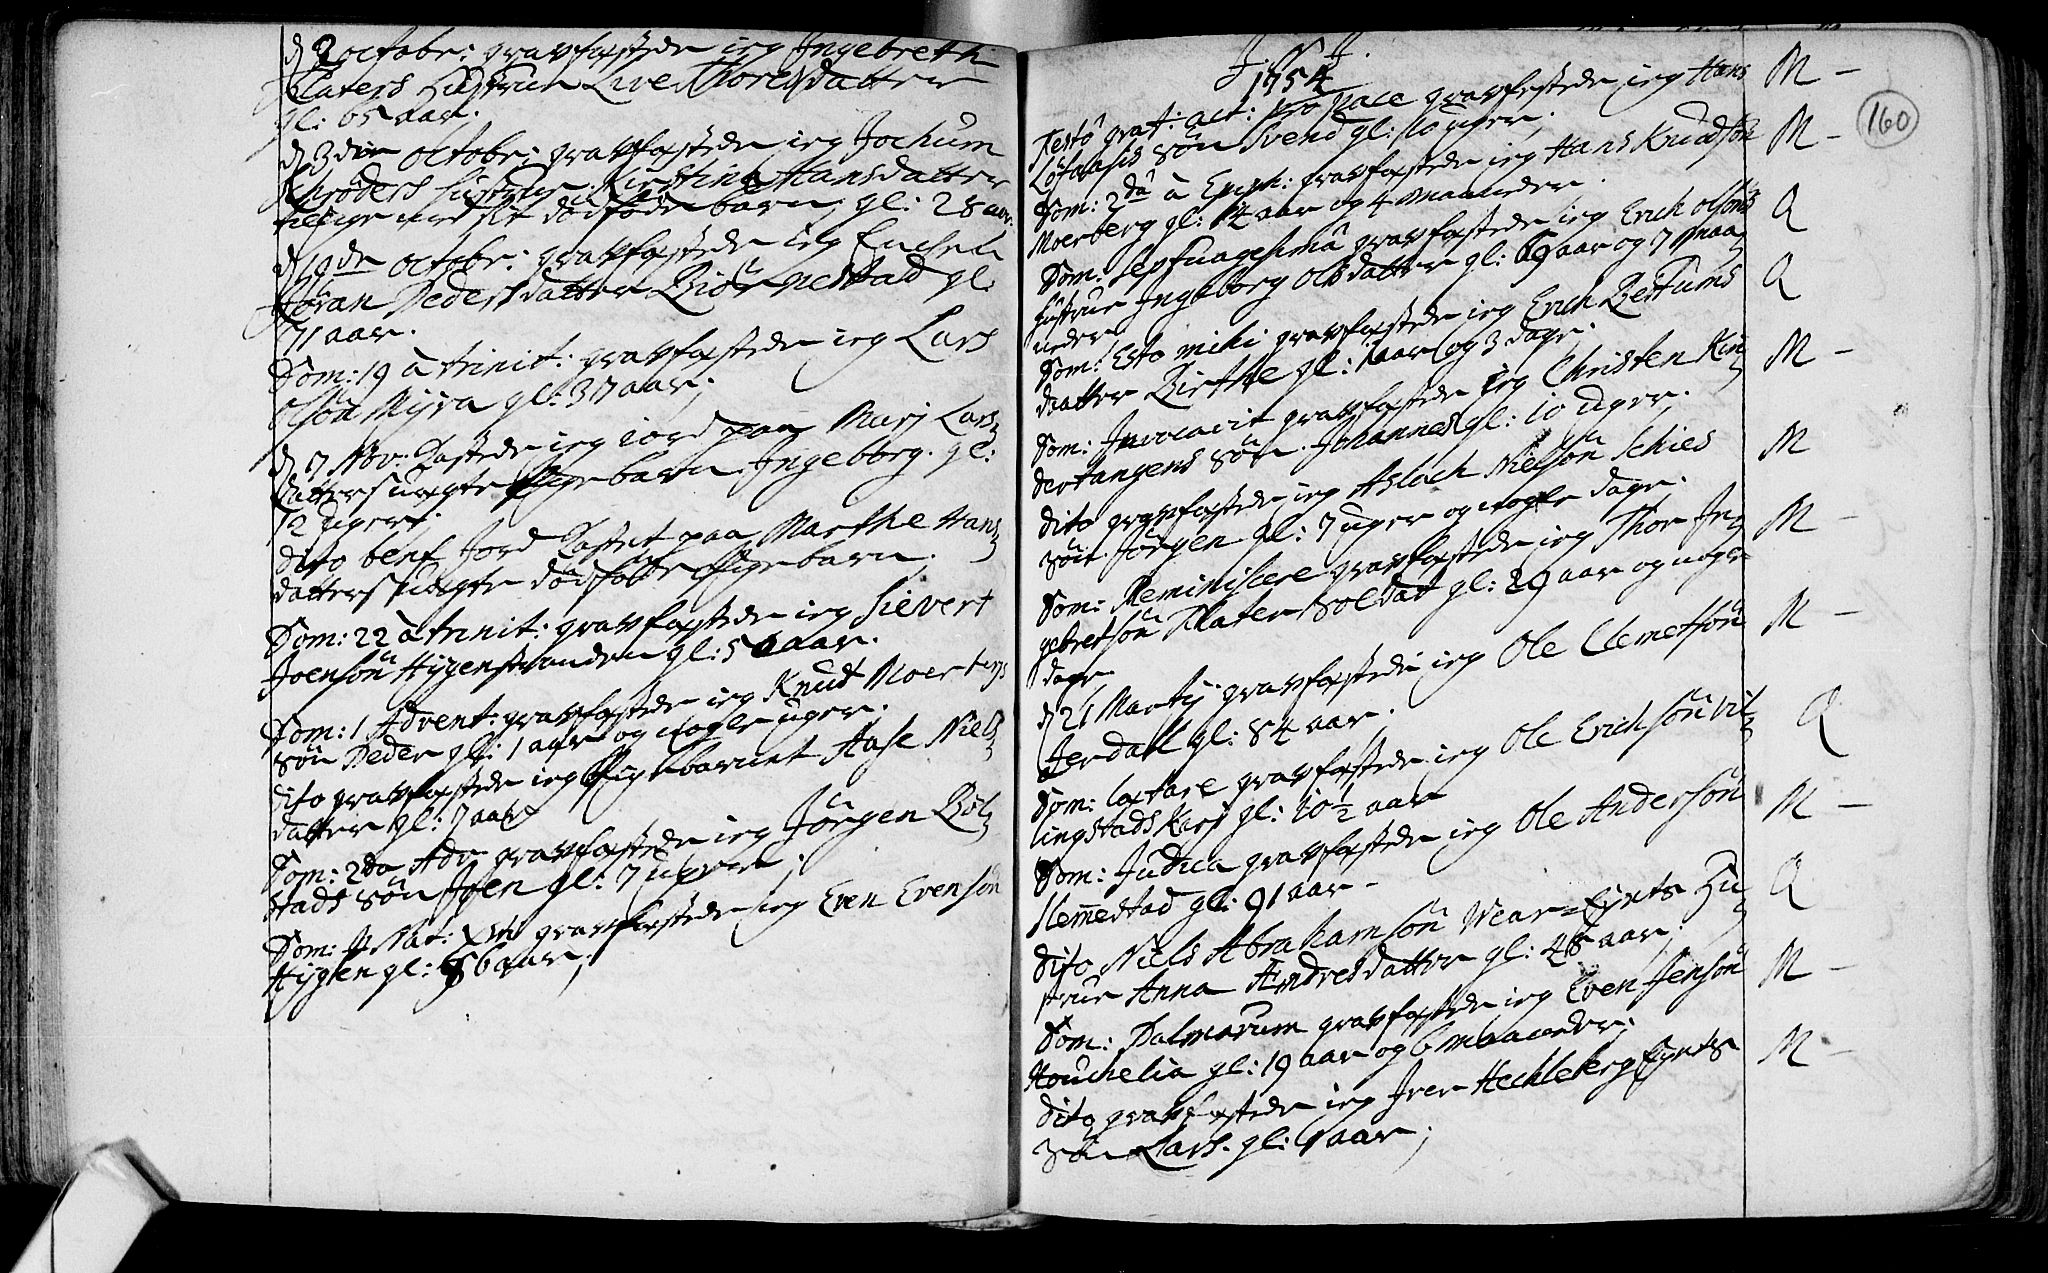 d 2 octobr: gravfæstede ieg Ingebreth
Platers Hustrue Live Thoresdatter
gl: 65 aar.
d 3die octobr: gravfæstede ieg Jochum
Schrøders Hustrue Kirstine Hansdatter
tillige med sit dødfødde barn, gl: 28 aar.
d 19de octobr: gravfæstede ieg Enchen
Jøran Pedersdatter Biørnestad gl:
71 aar.
Dom: 19 à trinit: gravfæstede ieg Lars
olsøn Myra gl: 37 aar;
d 7 Nov: kastede ieg iord paa Marj Lars-
datters uægte Pigebarn Ingeborg. gl:
12 uger.
dito bemt Jord kastet paa Marthe Hans-
datters uægte dødfødde Pigebarn;
Dom: 22 à trinit: gravfæstede ieg Sievert
Joensøn Hygenstranden gl: 50 aar.
Dom: 1 Advent: gravfæstede ieg Knud Moertvejs
søn Peder gl: 1 aar og nogle uger.
dito gravfæstede ieg Pigebarnet Aase Niels-
datter gl: 7 aar
Dom: 2da Adv gravfæstede ieg Jørgen Bøl-
stads søn Joen gl: 7 uger;
Dom: p Nat: Xti gravfæstede ieg Even Evensøn
Hygen gl: 86 aar;
J. N. J.
1754
Festo grat: act: pro pace gravfæstede ieg Hans
Løfaasis søn Svend gl: 10 uger;
M -
Dom: 2da à Epiph: gravfæstede ieg Hans Knudsøn
Moerberg gl: 14 aar og 4 maaneder.
M -
Dom: Septuagesima gravfæstede ieg Erich olsøns
Hustrue Ingeborg Olsdatter gl: 69 aar og 7 maa-
neder
Q
Dom: Esto mihi gravfæstede ieg Erich Bestums
daatter Birthe gl: 1 aar og 3 dage;
Q
Dom: Invocavit gravfæstede ieg Christen Kin-
dertangens søn Johannes gl: 10 uger.
M -
dito gravfæstede ieg Aslach Nielsøn Schies
søn Jørgen gl: 7 uger og nogle dage.
M
Dom: Reminiscere gravfæstede ieg Thor In-
gebretsøn Plater Soldat gl: 29 aar og nogle
dage
M -
d 21 Martij gravfæstede ieg Ole Clemetsøn
Jerdall gl: 84 aar.
M -
Dom: lætare gravfæstede ieg Ole Erichsøn Vil-
lingstads Karj gl: 10½ aar
Q
Dom: Judica gravfæstede ieg Ole Andersøn
Slemestad gl: 91 aar -
M -
dito Niels Abrahamsøn Wear-Eyets Hu-
strue Anna Andresdatter gl: 48 aar;
Q
Dom: Palmarum gravfæstede ieg Even Jensøn
Houchelia gl: 19 aar og 6 maaneder;
M -
dito gravfæstede ieg Iver Hechleberg Eyets
søn Lars. gl: 1 aar;
M -
160